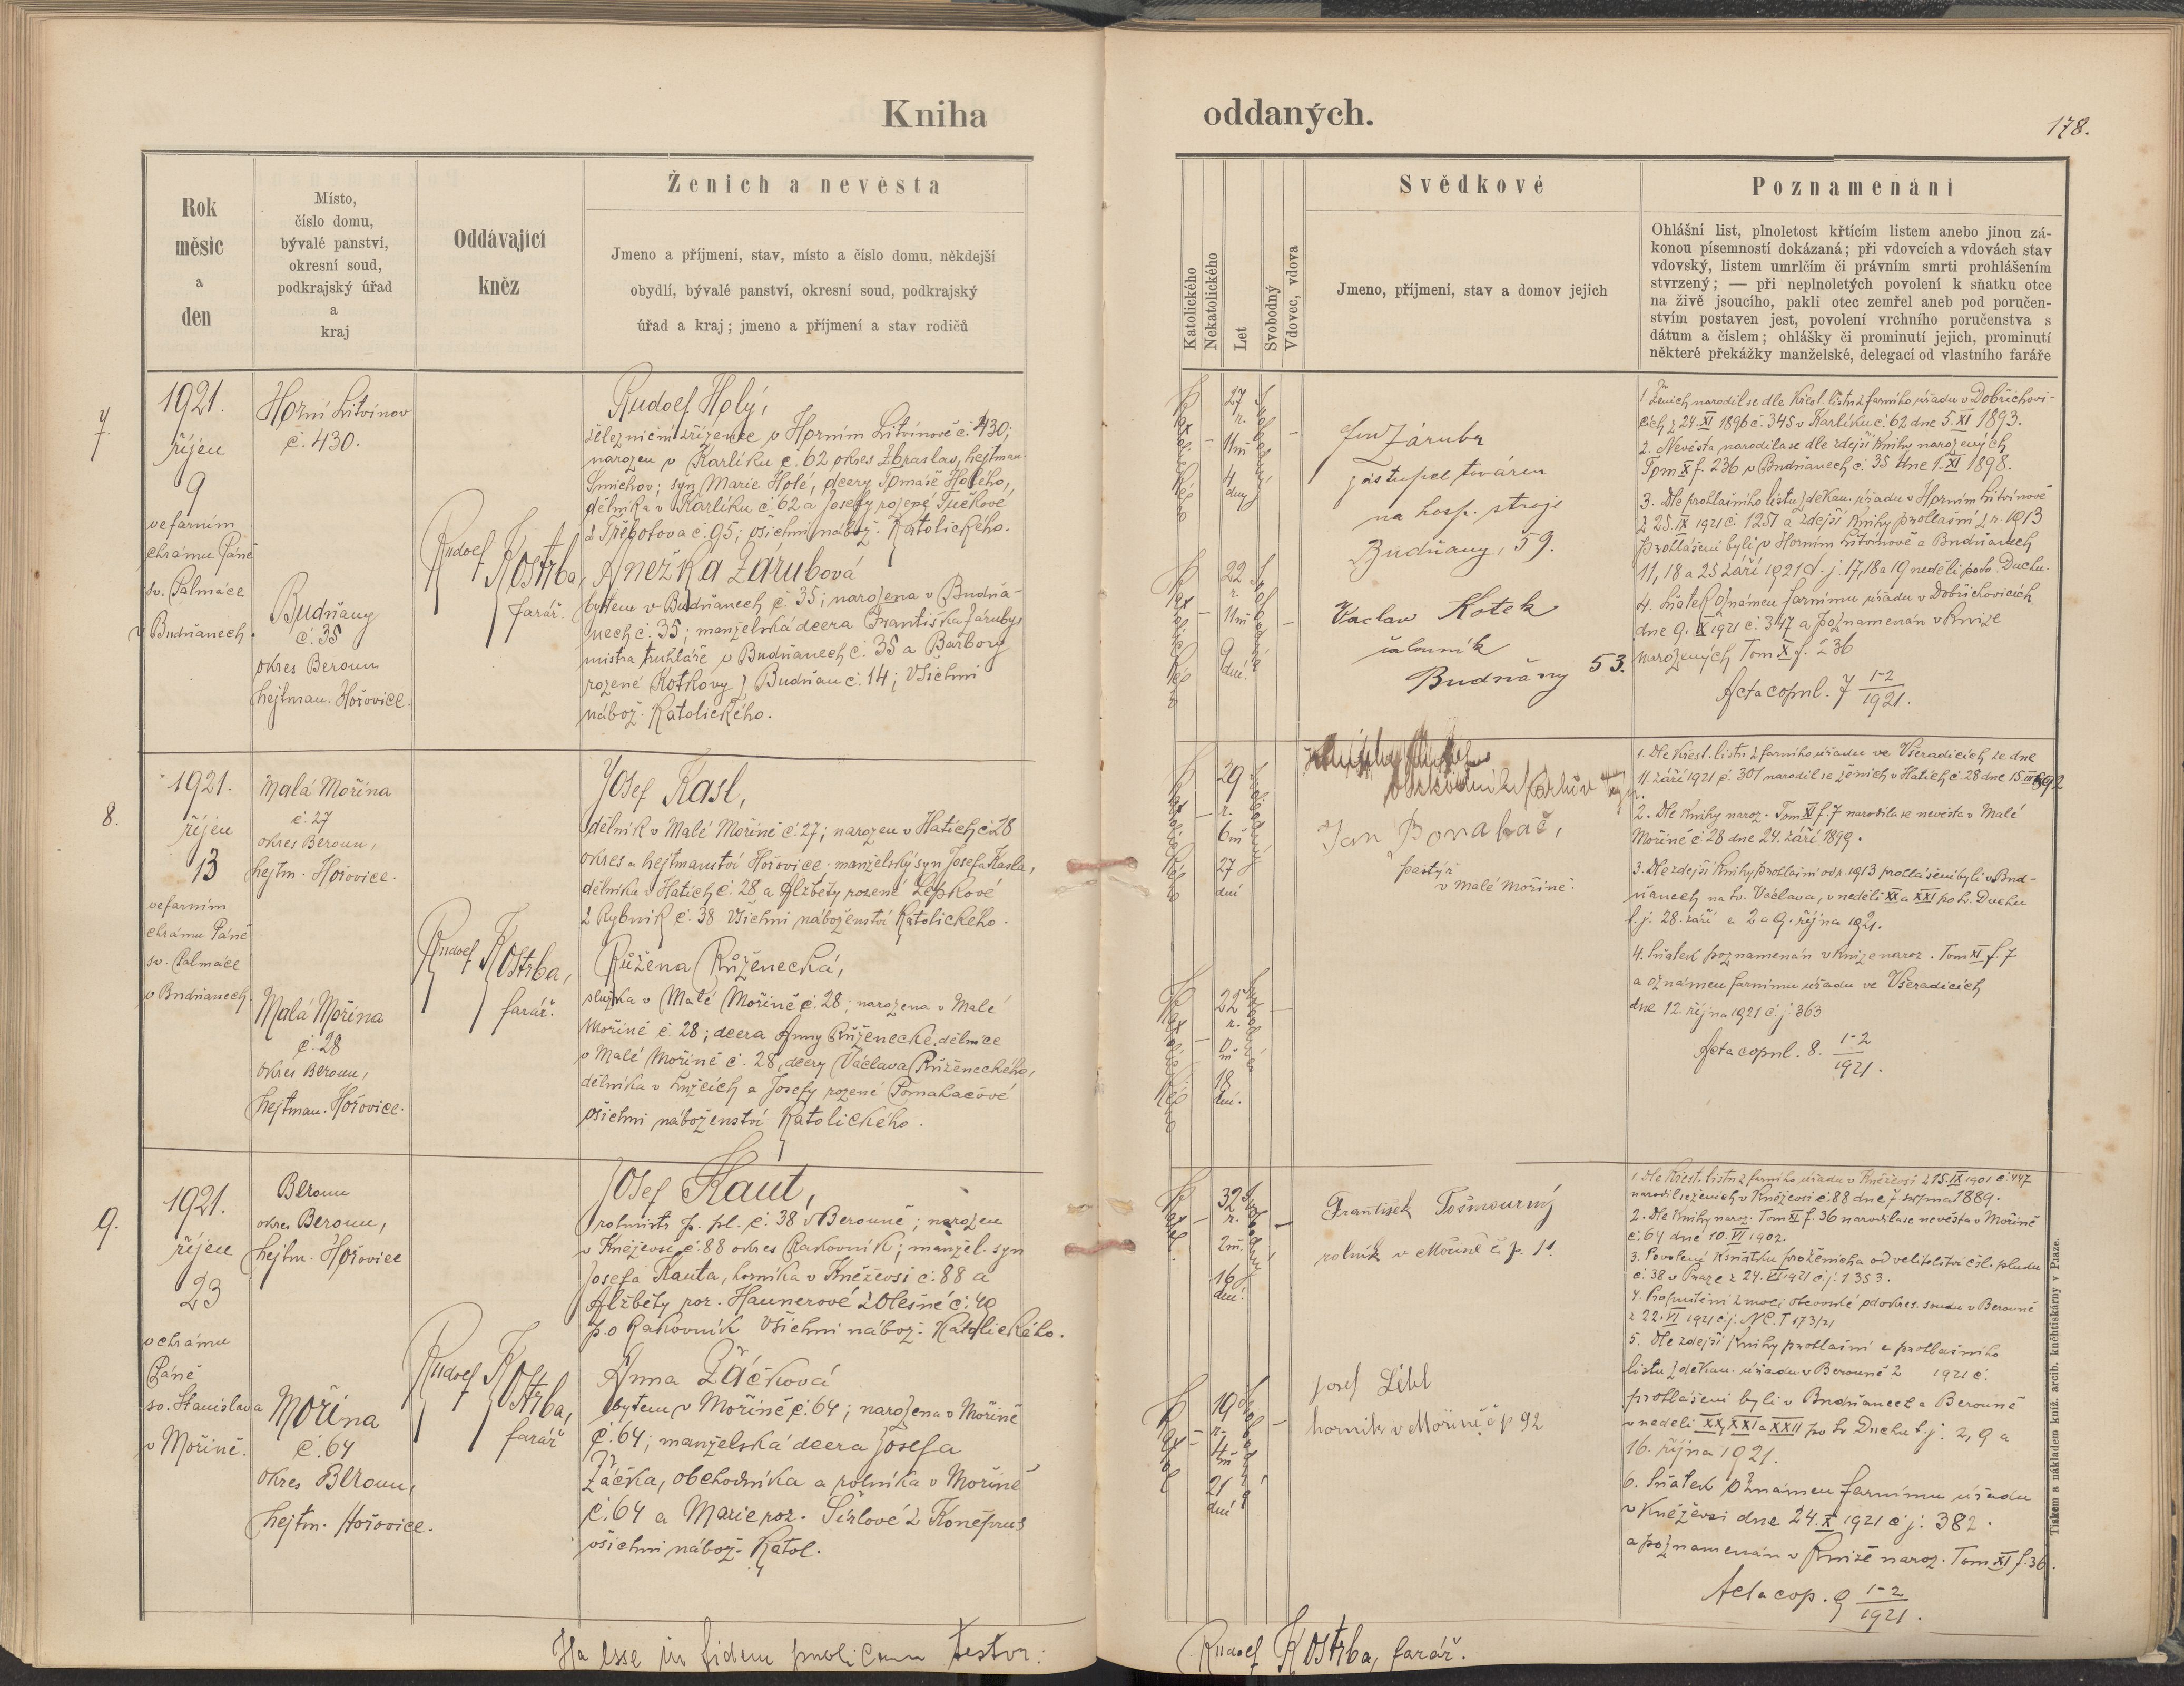 Kniha oddaných.
178.
Rok
měsíc
a
den
Místo,
číslo domu,
bývalé panství,
okresní soud,
podkrajský úřad
a
kraj
Oddávající
kněz
Ženich a nevěsta
Jmeno a příjmení, stav, místo a číslo domu, někdejší
obydlí, bývalé panství, okresní soud, podkrajský
úřad a kraj; jmeno a příjmení a stav rodičů
Katolického
Nekatolického
Let
Svobodný
Vdovec, vdova
Svědkové
Jmeno, příjmení, stav a domov jejich
Poznamenání
Ohlášní list, plnoletost křtícím listem anebo jinou zá-
konou písemností dokázaná; při vdovcích a vdovách stav
vdovský, listem umrlčím či právním smrti prohlášením
stvrzený; — při neplnoletých povolení k sňatku otce
na živě jsoucího, pakli otec zemřel aneb pod poručen-
stvím postaven jest, povolení vrchního poručenstva s
dátum a číslem; ohlášky či prominutí jejich, prominutí
některé překážky manželské, delegací od vlastního faráře
7.
1921.
říjen
9
ve farním
chrámu Páně
sv. Palmáce
v Budňanech.
Horní Litvínov
č. 430.
Budňany
č. 35
okres Beroun
hejtman. Hořovice.
Rudolf Kostrba,
farář.
Rudolf Holý,
železniční zřízenec v Horním Litvínově č. 430;
narozen v Karlíku č. 62 okres Zbraslav, hejtman.
Smíchov; syn Marie Holé, dcery Tomáše Holého,
dělníka v Karlíku č. 62 a Josefy rozené Tučkové
z Třebotova č. 95; všichni nábož. Katolického.
Anežka Zárubová
bytem v Budňanech č. 35; narozena v Budňa-
nech č. 35; manželská dcera Františka Záruby,
mistra truhláře v Budňanech č. 35 a Barbory
rozené Kotkovy z Budňan č. 14; Všichni
nábož. Katolického.
27
r.
11 m
4
dny
22
r.
11 m
9
dní.
Jan Záruba
zástupce továren
na hosp. stroje
Budňany, 59.
Václav Kotek
čalouník
Budňany 53.
1. Ženich narodil se dle křest. listu z farního úřadu v Dobřichovi-
cích z 24. XI 1896 č. 345 v Karlíku č. 62 dne 5. XI 1893.
2. Nevěsta narodila se dle zdejší knihy narozených
Tom X f. 236 v Budňanech č. 35 dne 1. XI 1898.
3. Dle prohlašního listu z děkan. úřadu v Horním Litvínově
z 25. IX 1921 č. 1251 a zdejší knihy prohlašní z r. 1913
Prohlášeni byli v Horním Litvínově a Budňanech
11, 18 a 25 září 1921 t. j. 17, 18 a 19 neděli po sv. Duchu.
4. Sňatek oznámen farnímu úřadu v Dobřichovicích
dne 9. X 1921 č. 347 a poznamenán v knize
narozených Tom X f. 236
Acta copul. 7 1-2
1921.
8.
1921.
říjen
13
ve farním
chrámu Páně
sv. Palmáce
v Budňanech
Malá Mořina
č. 27
okres Beroun,
hejtm. Hořovice.
Malá Mořina
č. 28
okres Beroun,
hejtman. Hořovice.
Rudolf Kostrba,
farář.
Josef Kasl,
dělník v Malé Mořině č. 27; narozen v Hatích č. 28
okres a hejtmanství Hořovice. manželský syn Josefa Kasla,
dělníka v Hatích č. 28 a Alžběty rozené Lepkové
z Rybník č. 38 Všichni náboženství Katolického.
Růžena Růženecká,
služka v Malé Mořině č. 28; narozena v Malé
Mořině č. 28; dcera Anny Růženecké, dělnice
v Malé Mořině č. 28, dcery Václava Růženeckého,
dělníka v Lužcích a Josefy rozené Pomahačové
všichni náboženství Katolického.
29
r.
6 m
27
dní
22
r.
0
m
18
dní.
Jan Bomahač,
pastýř
v Malé Mořině.
1. Dle křest. listu z farního úřadu ve Všeradicích ze dne
11. září 1921 č. 301 narodil se ženich v Hatích č. 28 dne 15. III 1892
2. Dle knihy naroz. Tom XI f. 7 narodila se nevěsta v Malé
Mořině č. 28 dne 24. září 1899.
3. Dle zdejší knihy prohlašní od r. 1913 prohlášeni byli v Bud-
ňanech na sv. Václava, v neděli XX a XXI po sv. Duchu
t. j. 28. září a 2 a 9. října 1921.
4. Sňatek poznamenán v knize naroz. Tom XI f. 7
a oznámen farnímu úřadu ve Všeradicích
dne 12. října 1921 č. j. 363
Acta copul. 8. 1-2
1921.
9.
1921.
říjen
23
v chrámu
Páně
sv. Stanislava
v Mořině.
Beroun
okres Beroun,
hejtm. Hořovice
Mořina
č. 64
okres Beroun,
hejtm. Hořovice.
Rudolf Kostrba,
farář
Josef Kaut,
rotmistr p. pl. č. 38 v Berouně; narozen
v Kněževsi č. 88 okres Rakovník; manžel. syn
Josefa Kauta, horníka v Kněževsi č. 88 a
Alžběty roz. Haunerové z Olešné č. 49
p. o Rakovník Všichni nábož. Katolického.
Anna Žáčková
bytem v Mořině č. 64; narozena v Mořině
č. 64; manželská dcera Josefa
Žáčka, obchodníka a rolníka v Mořině
č. 64 a Marie roz. Širlové z Koněprus
všichni nábož. Katol.
32
r.
2 m.
16
dní.
19
r.
4
m
21
dní
František Pošmourný
rolník v Mořině č. p. 11.
Josef Líbl
horník v Mořině č p 92
1. Dle křest. listu z farního úřadu v Kněževsi z 15. IX 1901 č. 447
narodil se ženich v Kněževsi č. 88 dne 7. srpna 1889.
2. Dle knihy naroz. Tom XI f. 36 narodila se nevěsta v Mořině
č. 64 dne 10. VI 1902.
3. Povolení k sňatku pro ženicha od velitelství čsl. pluku
č. 38 v Praze z 24. VI 1921 č. j. 1353.
4. Propuštění z moci otcovské od okres. soudu v Berouně
z 22. VI 1921 č. j. NC. I 173/21
5. Dle zdejší knihy prohlašní a prohlašního
listu z děkan. úřadu v Berouně z 1921 č.
prohlášeni byli v Budňanech a Berouně
v neděli XX, XXI a XXII po sv. Duchu t. j. 2, 9 a
16. října 1921.
6. Sňatek oznámen farnímu úřadu
v Kněževsi dne 24. X 1921 č. j. 382.
a poznamenán v knize naroz. Tom XI f. 36.
Acta cop. 9 1-2
1921.
Ita esse in fidem publicam testor: Rudolf Kostrba, farář.
Tiskem a nákladem kníž. arcib. knihtiskárny v Praze.